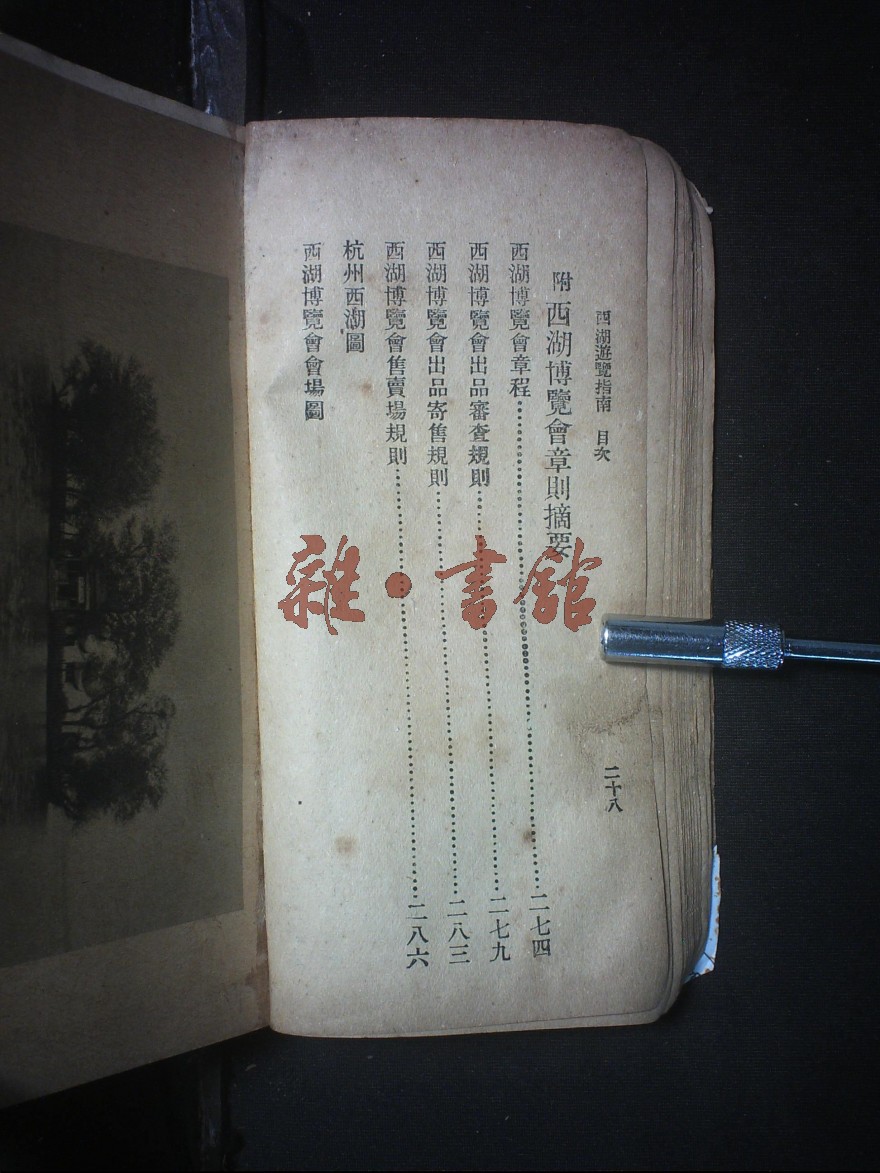 西湖遊覽指南 目次
二十八
附 西湖博覽會章則摘要
西湖博覽會章程……二七四
西湖博覽會出品審查規則……二七九
西湖博覽會出品寄售規則……二八三
西湖博覽會售賣場規則……二八六
杭州西湖圖
西湖博覽會會場圖
雜·書館